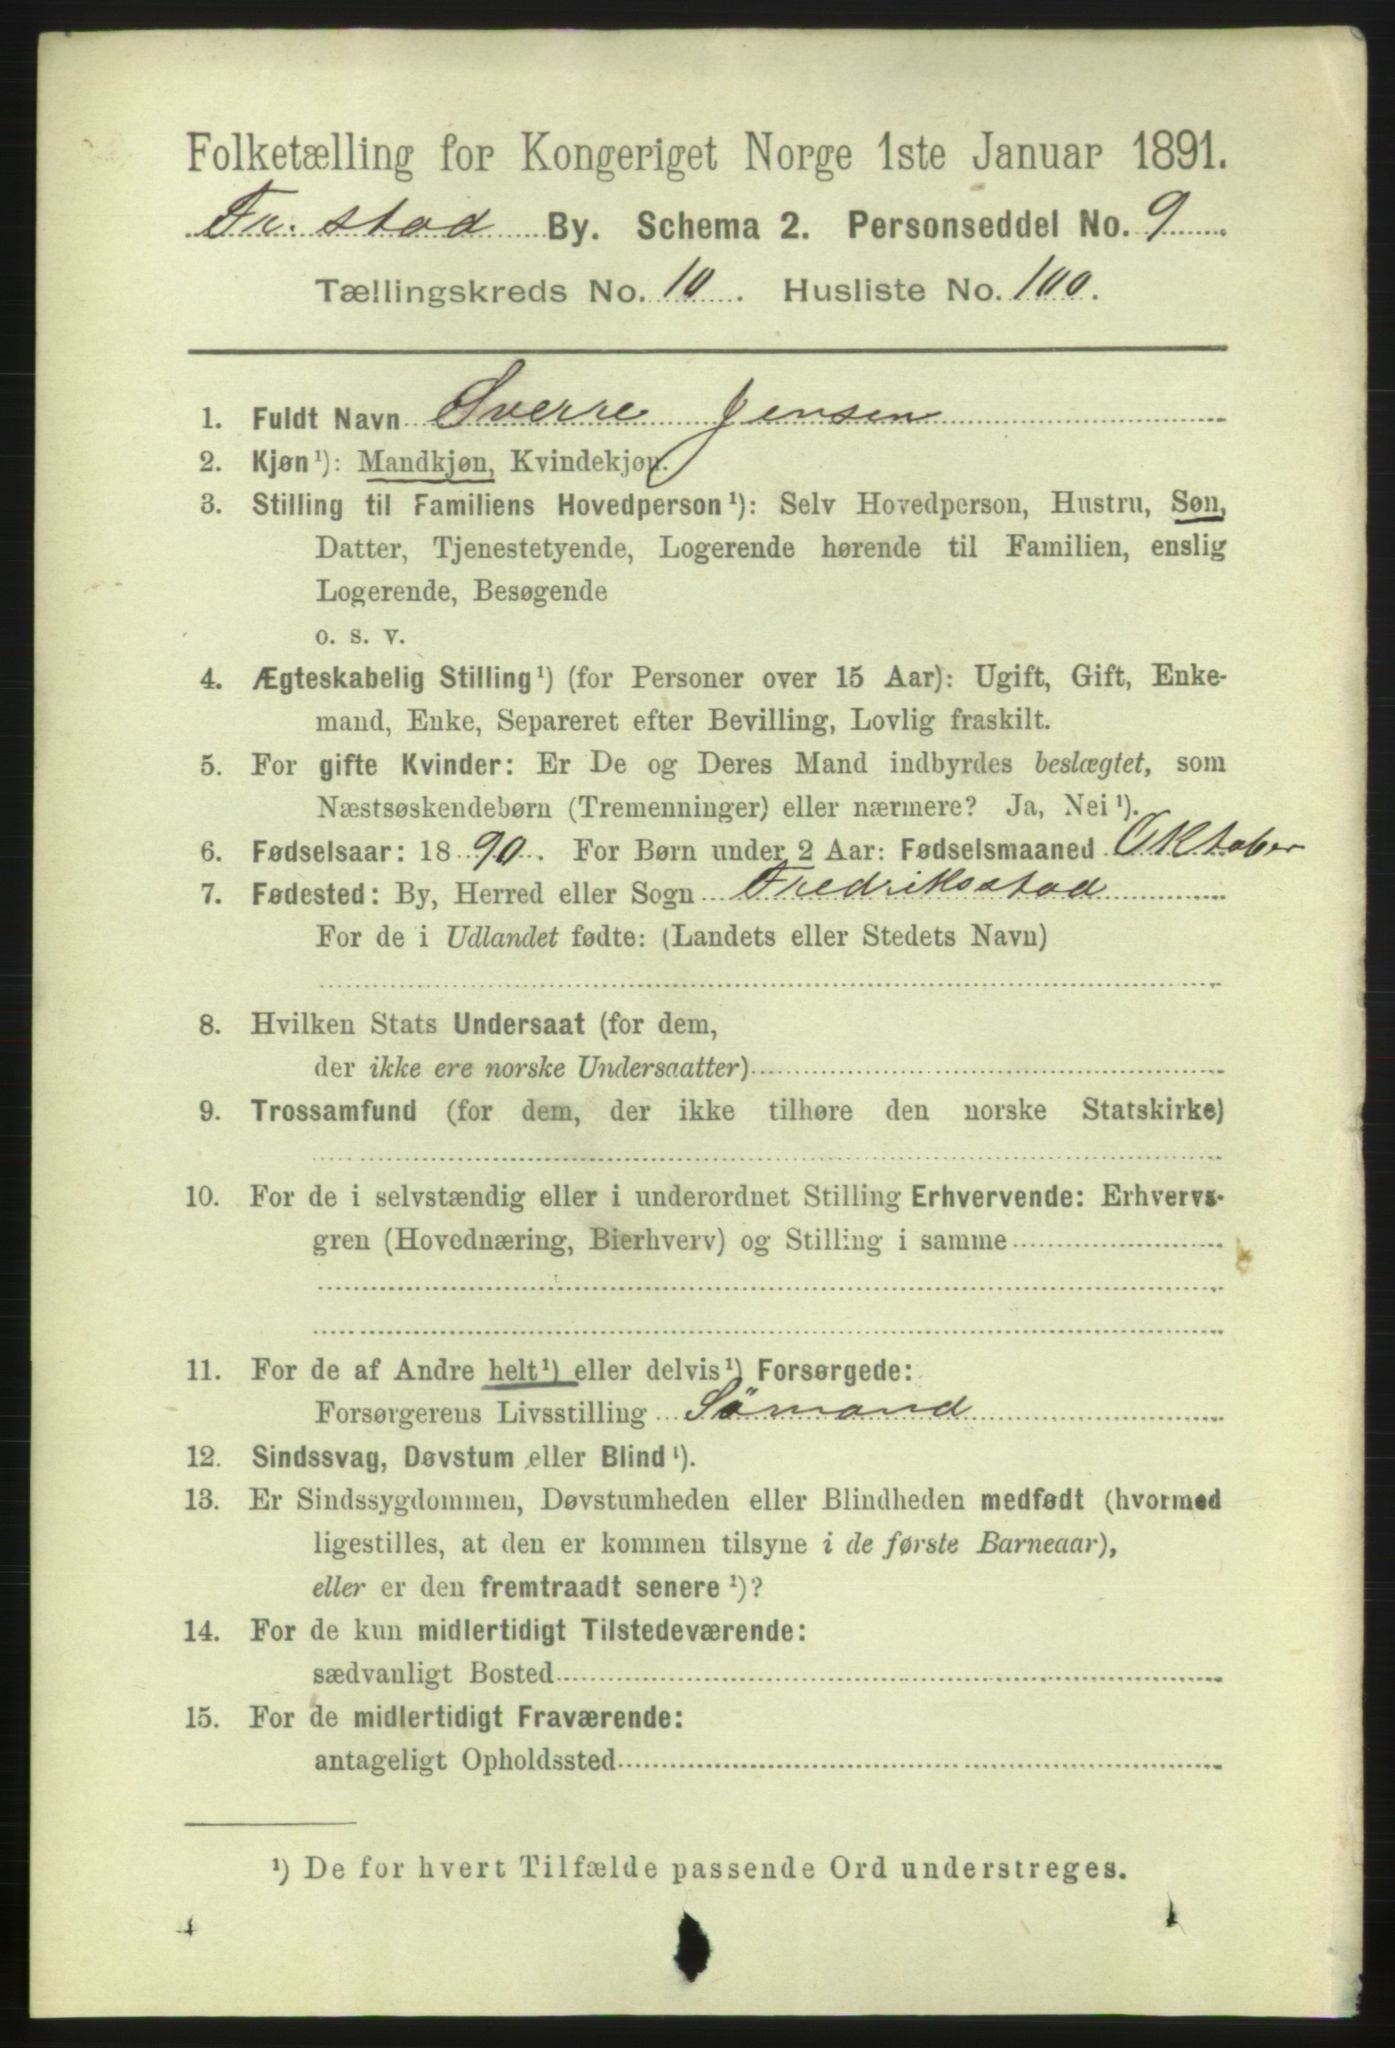 Folketælling for Kongeriget Norge 1ste Januar 1891.
Fr. stad By. Schema 2. Personseddel No. 9
Tællingskreds No. 10. Husliste No. 100.
1. Fuldt Navn Sverre Jensen
2. Kjøn¹): Mandkjøn, Kvindekjøn.
3. Stilling til Familiens Hovedperson¹): Selv Hovedperson, Hustru, Søn,
Datter, Tjenestetyende, Logerende hørende til Familien, enslig
Logerende, Besøgende
o. s. v.
4. Ægteskabelig Stilling¹) (for Personer over 15 Aar): Ugift, Gift, Enke-
mand, Enke, Separeret efter Bevilling, Lovlig fraskilt.
5. For gifte Kvinder: Er De og Deres Mand indbyrdes beslægtet, som
Næstsøskendebørn (Tremenninger) eller nærmere? Ja, Nei¹).
6. Fødselsaar: 1890. For Børn under 2 Aar: Fødselsmaaned Oktober
7. Fødested: By, Herred eller Sogn Fredriksstad
For de i Udlandet fødte: (Landets eller Stedets Navn)
8. Hvilken Stats Undersaat (for dem,
der ikke ere norske Undersaatter)
9. Trossamfund (for dem, der ikke tilhøre den norske Statskirke)
10. For de i selvstændig eller i underordnet Stilling Erhvervende: Erhvervs-
gren (Hovednæring, Bierhverv) og Stilling i samme
11. For de af Andre helt¹) eller delvis¹) Forsørgede:
Forsørgerens Livsstilling Sömand
12. Sindssvag, Døvstum eller Blind¹).
13. Er Sindssygdommen, Døvstumheden eller Blindheden medfødt (hvormed
ligestilles, at den er kommen tilsyne i de første Barneaar),
eller er den fremtraadt senere¹)?
14. For de kun midlertidigt Tilstedeværende:
sædvanligt Bosted
15. For de midlertidigt Fraværende:
antageligt Opholdssted
¹) De for hvert Tilfælde passende Ord understreges.